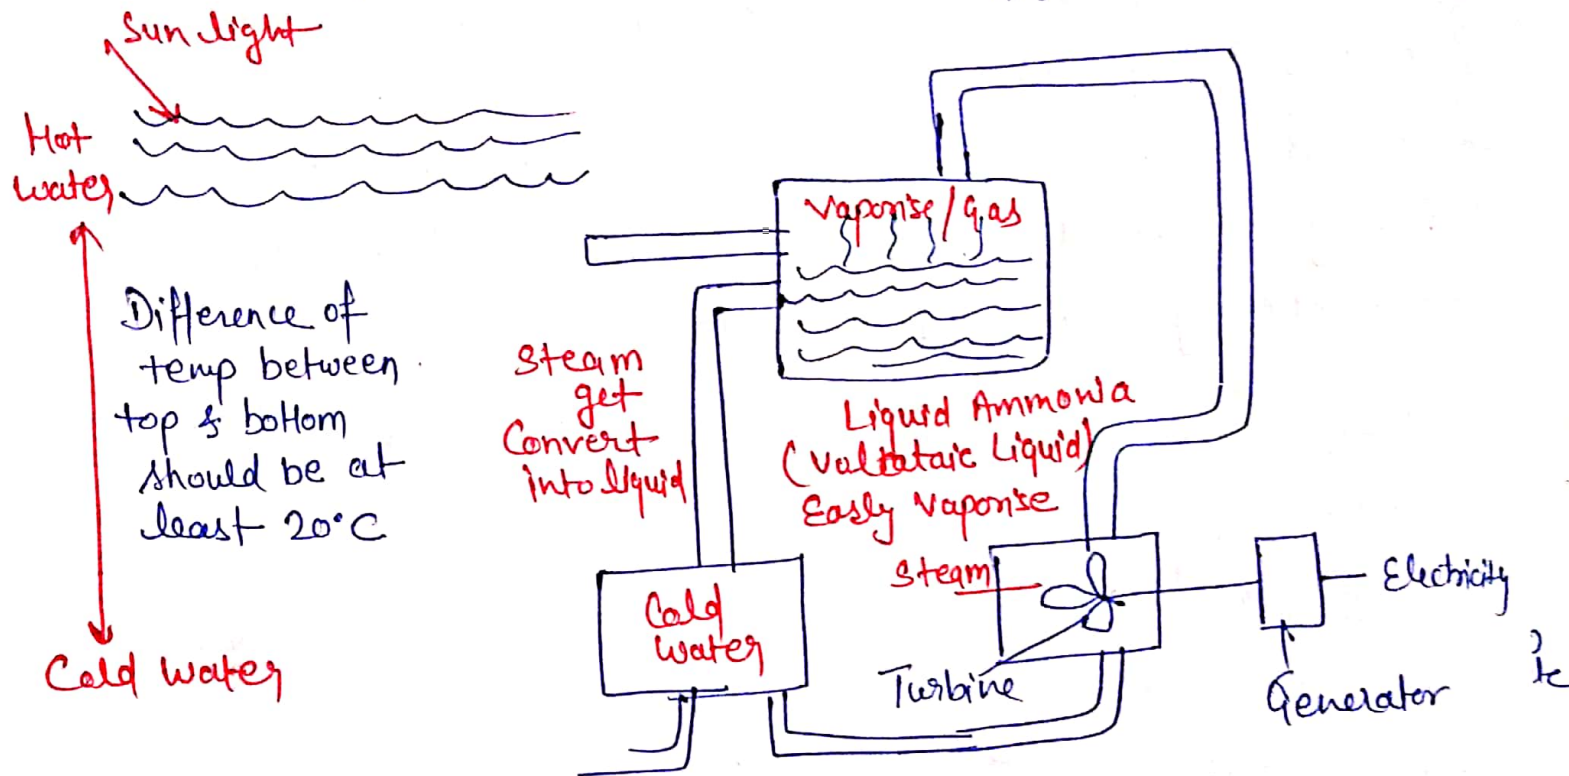 Sun light
Hot
water
Difference of
temp between
top & bottom
should be at
least 20°C
Cold water
Steam
get
Convert
into liquid
Vaporise/Gas
Liquid Ammonia
(Valtataic Liquid)
Easly Vaporise
Cold
water
Steam
Turbine
Electricity
Generator